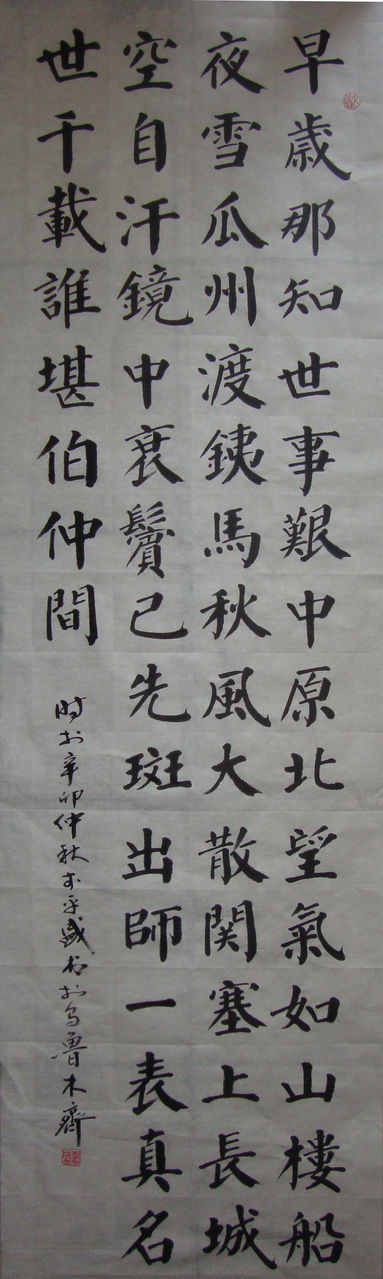 早歲那知世事艱中原北望氣如山樓船
夜雪瓜州渡銕馬秋風大散関塞上長城
空自汗鏡中衰鬢已先斑出師一表真名
世千載誰堪伯仲間
时於辛卯仲秋平盛书於乌魯木齊